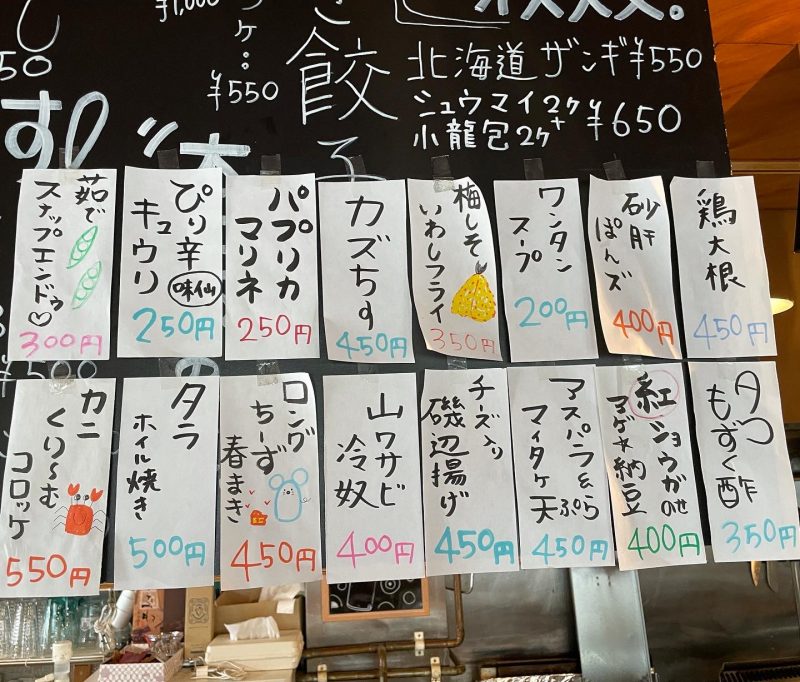 オススメ。
北海道 ザンギ ¥550
シュウマイ2ケ+
小龍包2ケ
¥650
き餃子
¥1,000
ケ:
¥550
50
鶏大根
450円
砂肝
ぽんズ
400円
ワンタン
スープ
200円
梅しそ
いわしフライ
350円
カズちす
450円
パプリカ
マリネ
250円
ぴり辛
味仙
キュウリ
250円
茹で
スナップエンドゥ♡
300円
タコ
もずく酢
350円
紅ショウガのせ
納豆
400円
アスパラ&
マイタケ天ぷら
450円
チーズ入り
磯辺揚げ
450円
山ワサビ
冷奴
400円
ロング
ちーず
春まき
450円
タラ
ホイル焼き
500円
カニ
くり〜む
コロッケ
550円
¥500